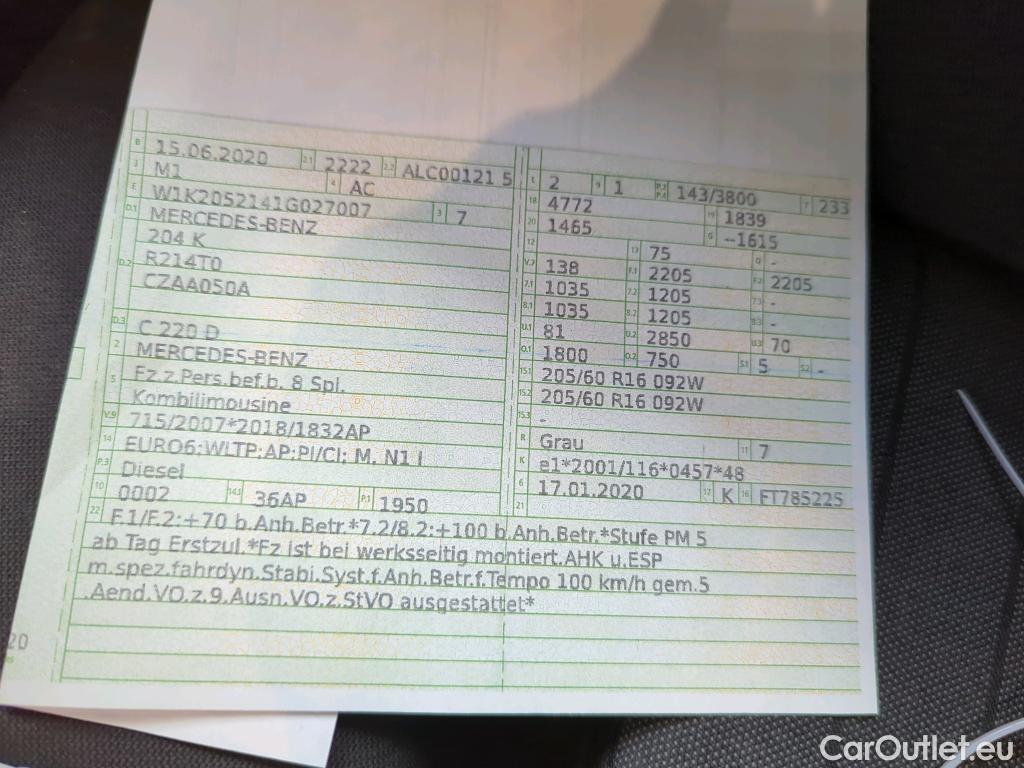 B 15.06.2020 2.1 2222 2.2 ALC00121 5
J M1 4 AC
E W1K2052141G027007 3 7
D.1 MERCEDES-BENZ
204 K
D.2 R214T0
CZAA050A
D.3 C 220 D
2 MERCEDES-BENZ
5 Fz.z.Pers.bef.b. 8 Spl.
Kombilimousine
V.9 715/2007*2018/1832AP
14 EURO6;WLTP;AP;PI/CI; M, N1 I
P.3 Diesel
10 0002 14.1 36AP P.1 1950
L 2 9 1 P.2 P.4 143/3800 T 233
18 4772 19 1839
20 1465 G --1615
12 13 75 Q -
V.7 138 F.1 2205 F.2 2205
7.1 1035 7.2 1205 7.3 -
8.1 1035 8.2 1205 8.3 -
U.1 81 U.2 2850 U.3 70
O.1 1800 O.2 750 S.1 5 S.2 -
15.1 205/60 R16 092W
15.2 205/60 R16 092W
15.3 -
R Grau 11 7
K e1*2001/116*0457*48
6 17.01.2020 17 K 16 FT785225
21
22 F.1/F.2:+70 b.Anh.Betr.*7.2/8.2:+100 b.Anh.Betr.*Stufe PM 5
ab Tag Erstzul.*Fz ist bei werksseitig montiert.AHK u.ESP
m.spez.fahrdyn.Stabi.Syst.f.Anh.Betr.f.Tempo 100 km/h gem.5
.Aend.VO.z.9.Ausn.VO.z.StVO ausgestattet*
20
CarOutlet.eu